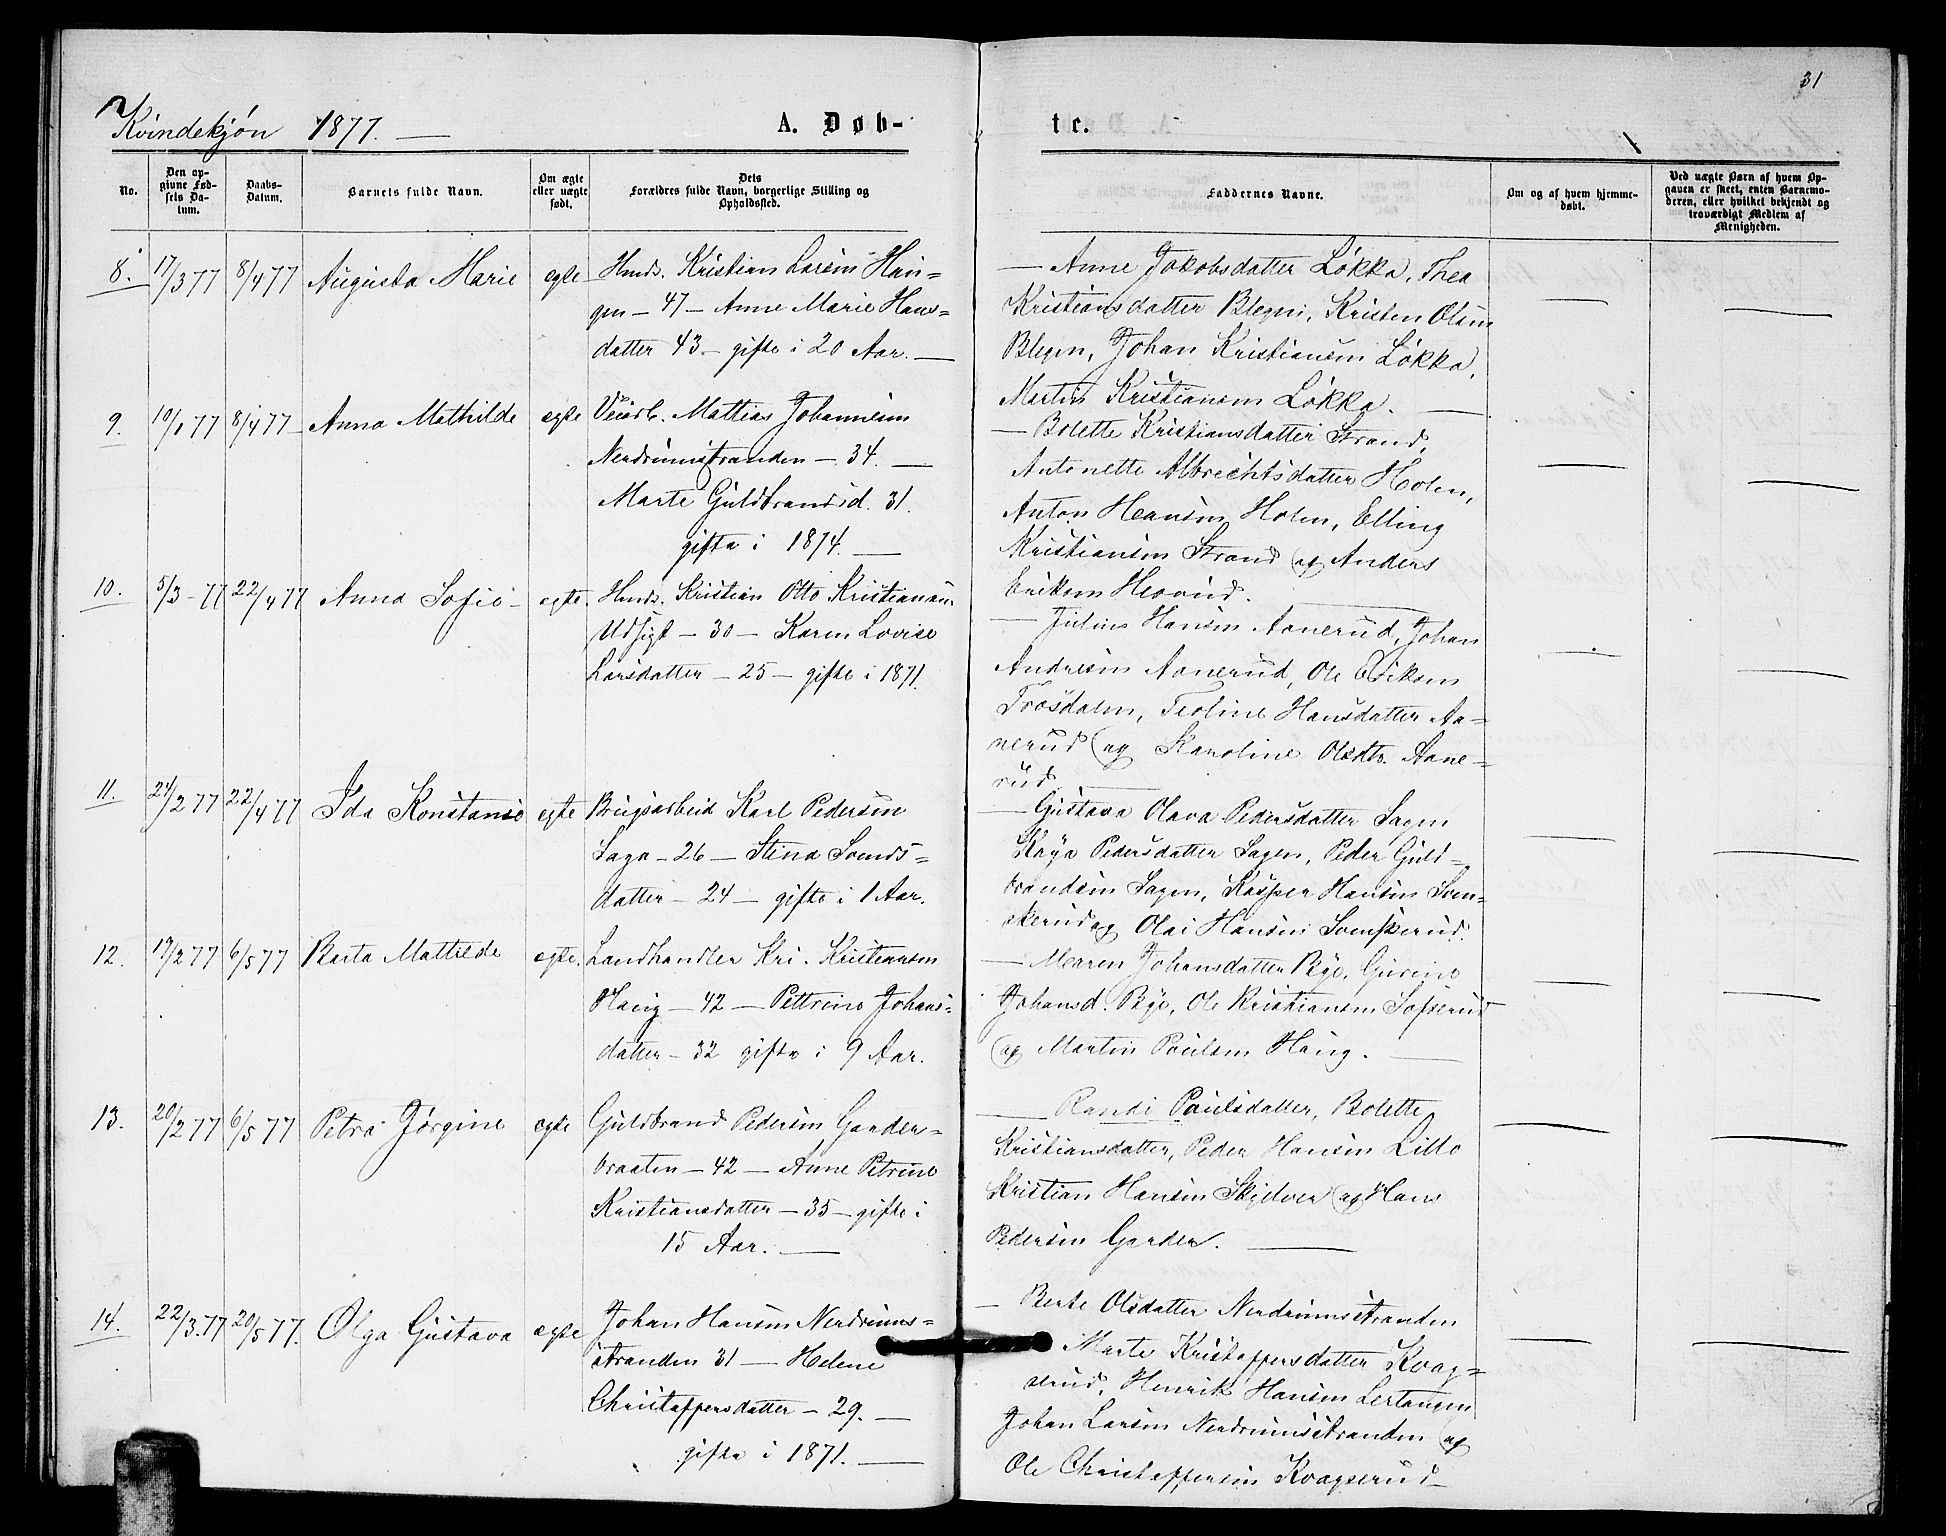 31
Kvindekjøn 1877. —
A. Døb-
te.
No.
Den op-
givne Fød-
sels Da-
tum.
Daabs-
Datum.
Barnets fulde Navn.
Om ægte
eller uægte
født.
Dets
Forældres fulde Navn, borgerlige Stilling og
Opholdssted.
Faddernes Navne.
Om og af hvem hjemme-
døbt.
Ved uægte Børn af hvem Op-
gaven er skeet, enten Barnemo-
deren, eller hvilket bekjendt og
troværdigt Medlem af
Menigheden.
8. 17/3 77 8/4 77 Augusta Marie egte
Husds. Kristian Larsen Hau-
gen — 47 — Anne Marie Hans-
datter 43 — gifte i 20 Aar. —
— Anne Jakobsdatter Løkka, Thea
Kristiansdatter Blegen, Kristen Olsen
Blegen, Johan Kristiansen Løkka,
Martin Kristiansen Løkka. —
9. 10/1 77 8/4 77 Anna Mathilde egte
Veiarb. Mattias Johannesen
Nerdrumstranden — 34. —
Marte Guldbrandsd. 31.
gifte i 1874. —
— Bolette Kristiansdatter Strand,
Antonette Albrechtsdatter Holen,
Anton Hansen Holen, Elling
Kristiansen Strand og Anders
Eriksen
10. 5/3 - 77 22/4 77 Anna Sofie egte.
Husds. Kristian Otto Kristiansen
Udsigt — 30 — Karen Lovise
Larsdatter — 25 — gifte i 1871.
— Julius Hansen Aanerud, Johan
Andresen Aanerud, Ole Eriksen
Trosdalen, Teoline Hansdatter Aa-
nerud og Karoline Olsdtr. Aane-
rud —
11. 24/2 77 22/4 77 Ida Konstanse egte
Brugsarbeid Karl Pedersen
Saga — 26 — Stina Svends-
datter — 24 — gifte i 1 Aar.
— Gustava Olava Pedersdatter Sagen
Kaja Pedersdatter Sagen, Peder Guld-
brandsen Sagen, Kasper Hansen Sven-
skerud og Olai Hansen Svenskerud.
12. 17/2 77 6/5 77 Berta Mathilde egte.
Landhandler Kri. Kristiansen
Haug — 42 — Pettrine Johans-
datter — 32 gifte i 9 Aar.
— Maren Johansdatter Bye, Gurine
Johansd. Bye, Ole Kristiansen
og Martin Paulsen Haug. —
13. 20/2 77 6/5 77 Petra Jørgine egte
Guldbrand Pedersen Garder-
braaten — 42 — Anne Petrine
Kristiansdatter — 35 — gifte i
15 Aar. —
— Randi Paulsdatter, Bolette
Kristiansdatter, Peder Hansen Lillo
Kristian Hansen Skjelver og Hans
Pedersen Garder. —
14. 22/3. 77 20/5 77. Olga Gustava egte
Johan Hansen Nerdrums-
stranden 31 — Helene
Christoffersdatter — 29. —
gifte i 1871. —
— Berte Olsdatter Nerdrumsstranden
Marte Kristoffersdatter Kvag-
serud, Henrik Hansen Lertangen
Johan Larsen Nerdrumsstranden og
Ole Christoffersen Kvagserud —